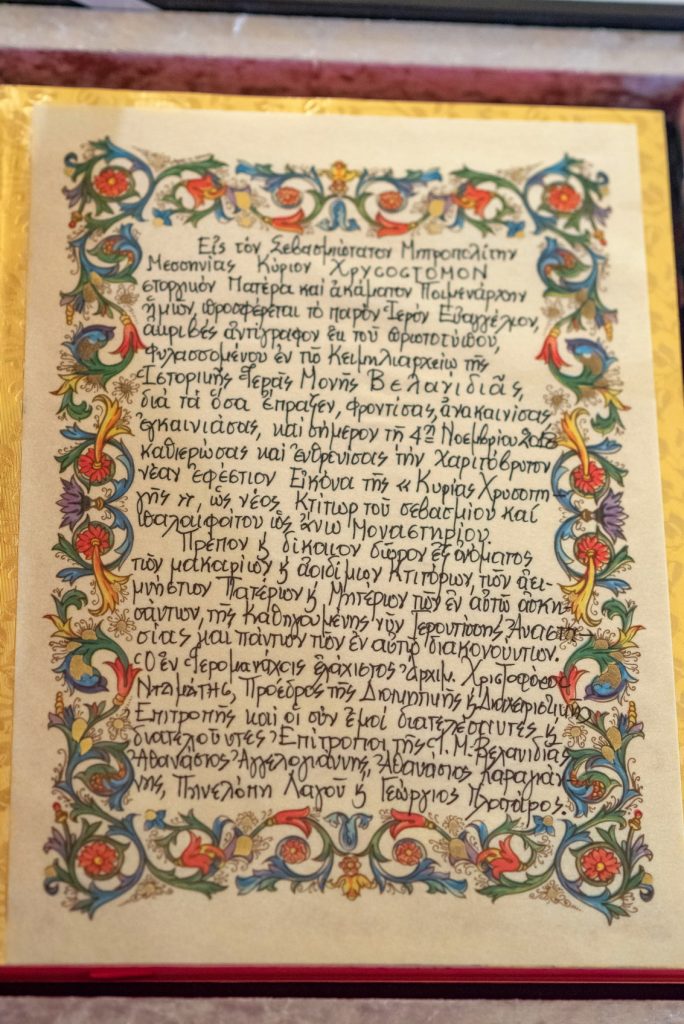 Εἰς τὸν Σεβασμιώτατον Μητροπολίτην
Μεσσηνίας Κύριον ΧΡΥCΟCΤΟΜΟΝ
στοργικὸν Πατέρα καὶ ἀκάματον Ποιμενάρχην
ἡμῶν, προσφέρεται τὸ παρὸν Ἱερὸν Εὐαγγέλιον,
ἀκριβὲς ἀντίγραφον ἐκ τοῦ πρωτοτύπου,
φυλασσομένου ἐν τῷ Κειμηλιαρχείῳ τῆς
Ἱστορικῆς Ἱερᾶς Μονῆς Βελανιδιᾶς,
διὰ τὰ ὅσα ἔπραξεν, φροντίσας, ἀνακαινίσας
ἐγκαινιάσας, καὶ σήμερον τῇ 4ῃ Νοεμβρίου
καθιερώσας καὶ ἐνθρονίσας τὴν Χαριτόβρυτον
νέαν ἐφέστιον Εἰκόνα τῆς « Κυρίας Χρυσοπη-
γῆς », ὡς νέος Κτίτωρ τοῦ σεβασμίου καὶ
παλαιφάτου ὡς ἄνω Μοναστηρίου.
Πρέπον ϗ δίκαιον δῶρον ἐξ ὀνόματος
τῶν μακαρίων ϗ ἀοιδίμων Κτιτόρων, τῶν ἀει-
μνήστων Πατέρων ϗ Μητέρων τῶν ἐν αὐτῷ ἀσκη-
σάντων, τῆς Καθηγουμένης νῦν Γεροντίσσης Ἀναστα-
σίας καὶ πάντων τῶν ἐν αὐτῷ διακονούντων.
Ὁ ἐν Ἱερομονάχοις ἐλάχιστος Ἀρχιμ. Χριστοφόρος
Πρόεδρος τῆς Διοικητικῆς ϗ Διαχειριστικῆς
Ἐπιτροπῆς καὶ οἱ σὺν ἐμοὶ διατελέσαντες ϗ
διατελοῦντες Ἐπίτροποι τῆς Ἱ. Μ. Βελανιδιᾶς
Ἀθανάσιος Ἀγγελογιάννης, Ἀθανάσιος Καραγιάν-
νης, Πηνελόπη Λαγοῦ ϗ Γεώργιος